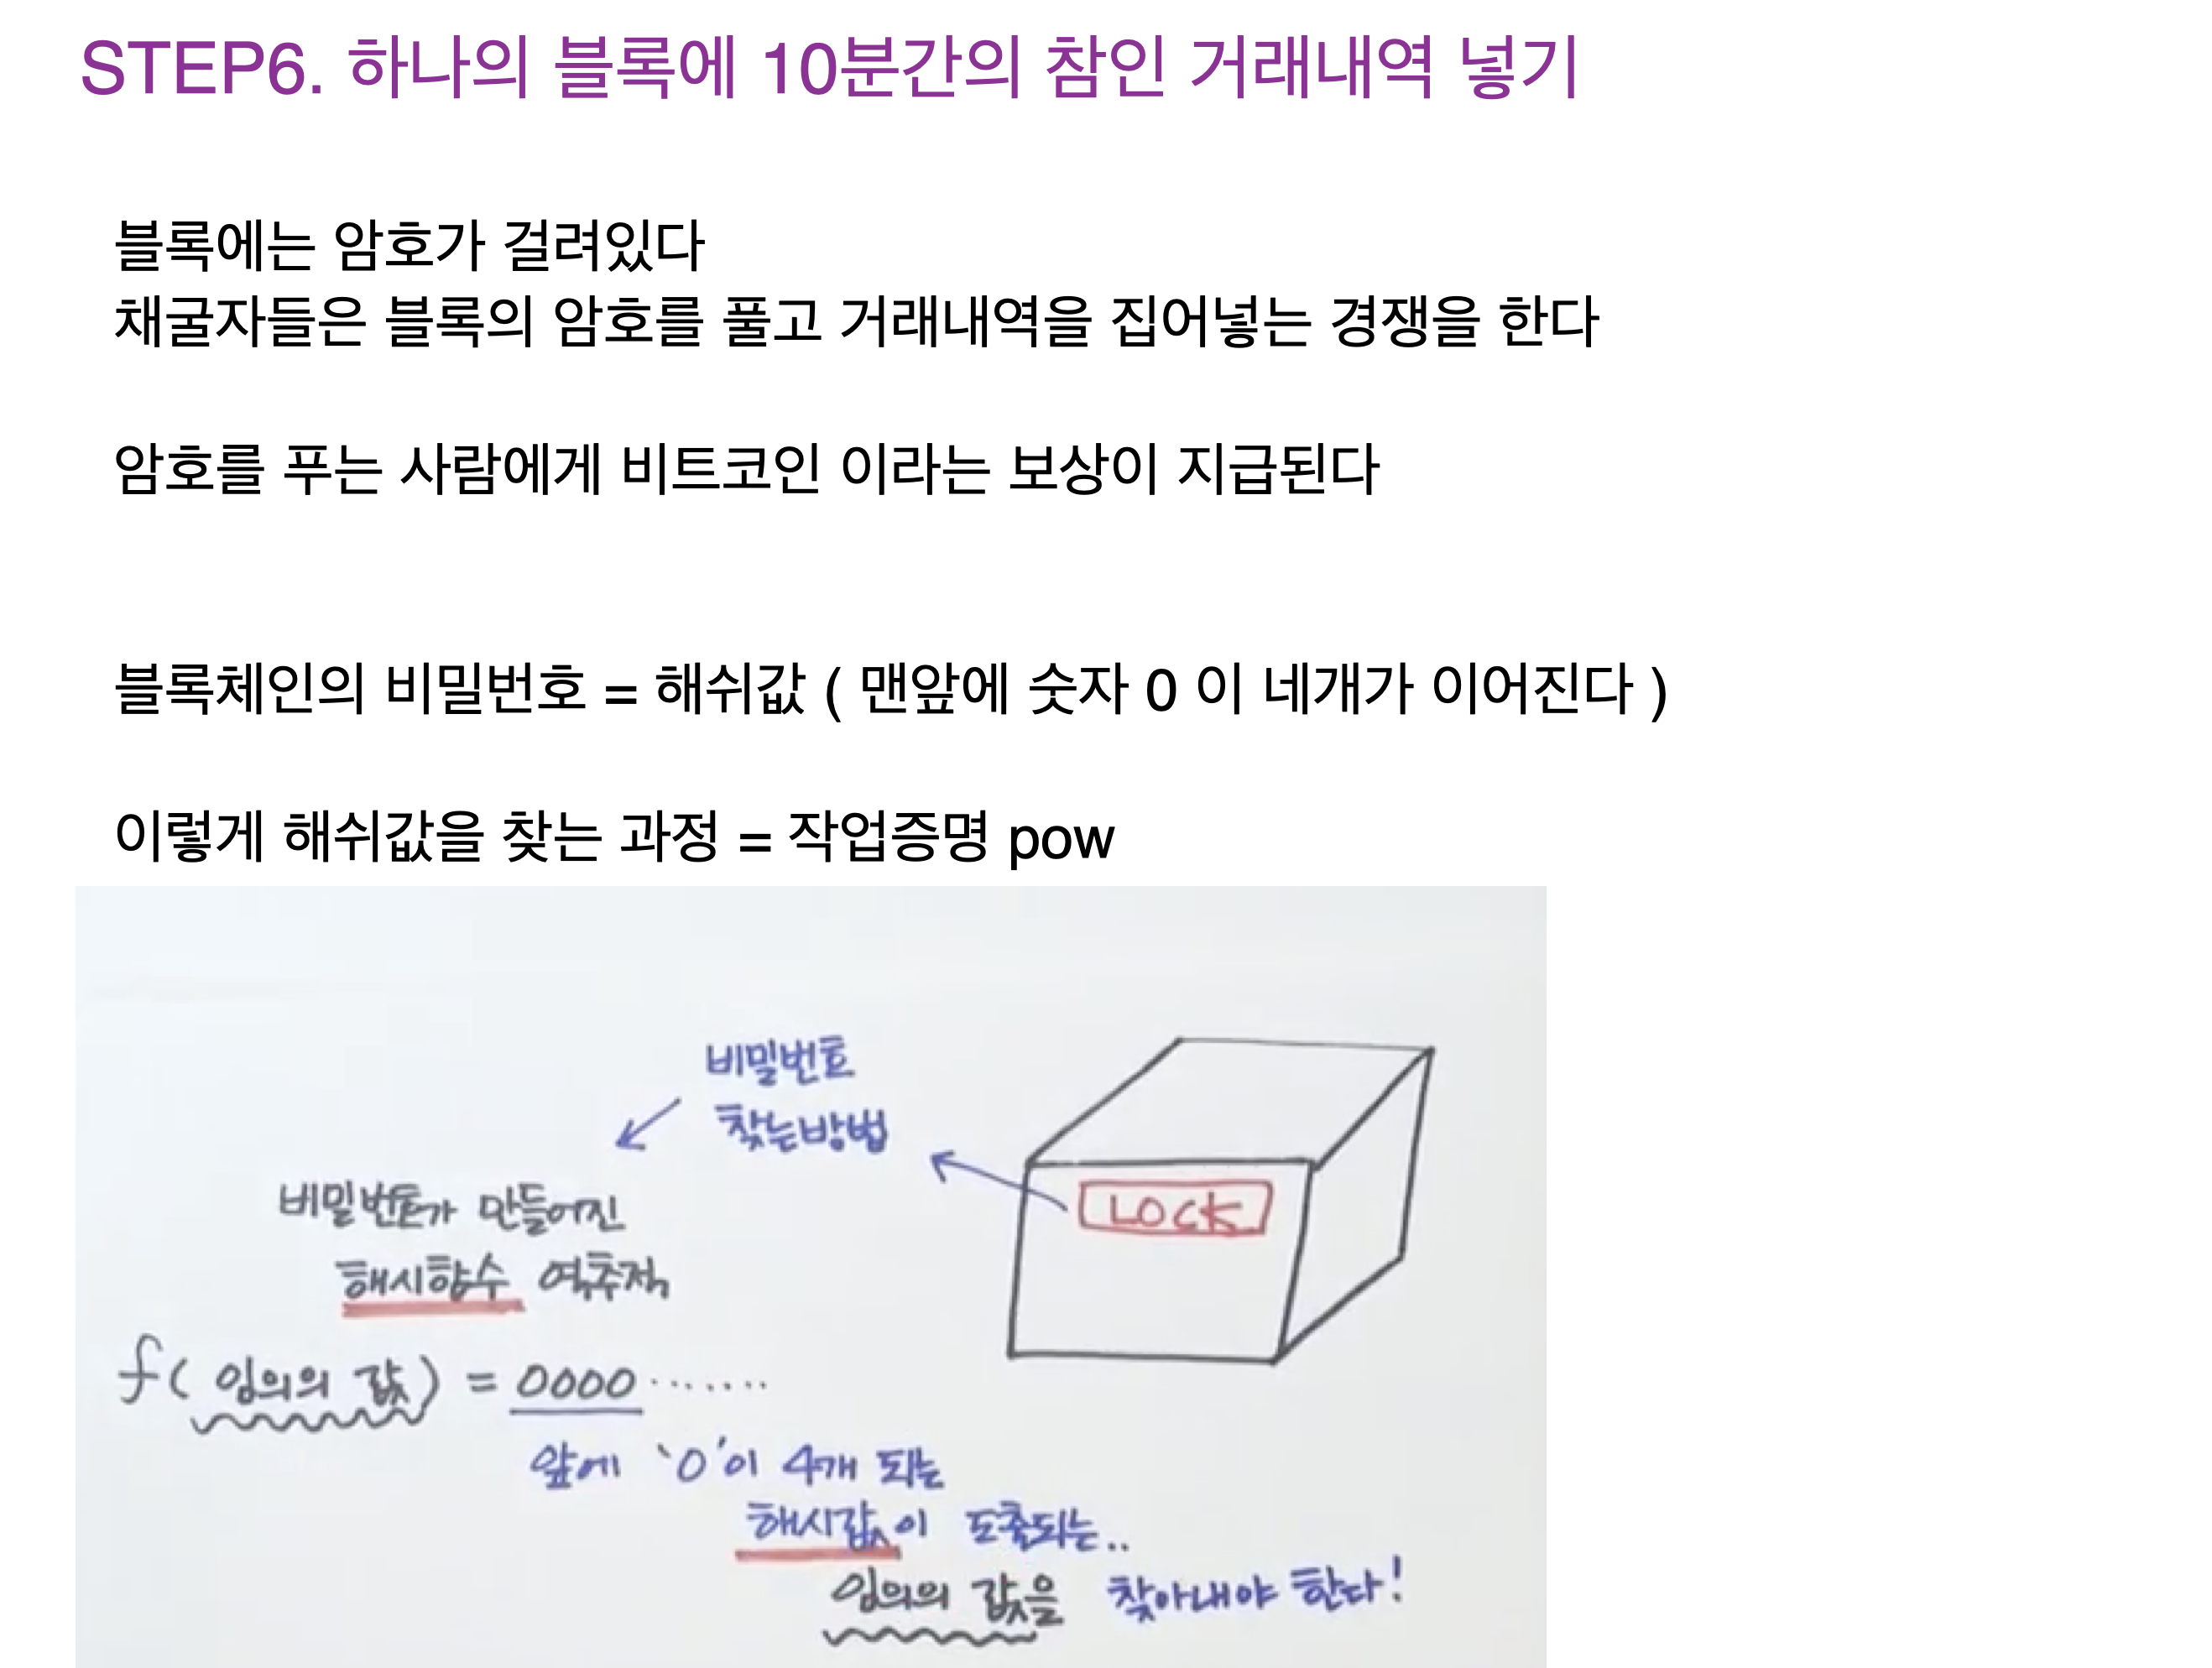 STEP6. 하나의 블록에 10분간의 참인 거래내역 넣기
블록에는 암호가 걸려있다
채굴자들은 블록의 암호를 풀고 거래내역을 집어넣는 경쟁을 한다
암호를 푸는 사람에게 비트코인 이라는 보상이 지급된다
블록체인의 비밀번호 = 해쉬값 ( 맨앞에 숫자 0 이 네개가 이어진다 )
이렇게 해쉬값을 찾는 과정 = 작업증명 pow
비밀번호
찾는방법
LOCK
비밀번호가 만들어진
해시함수 역추적
f( 임의의 값 ) = 0000 .......
앞에 '0'이 4개 되는
해시값이 도출되는..
임의의 값을 찾아내야 한다!